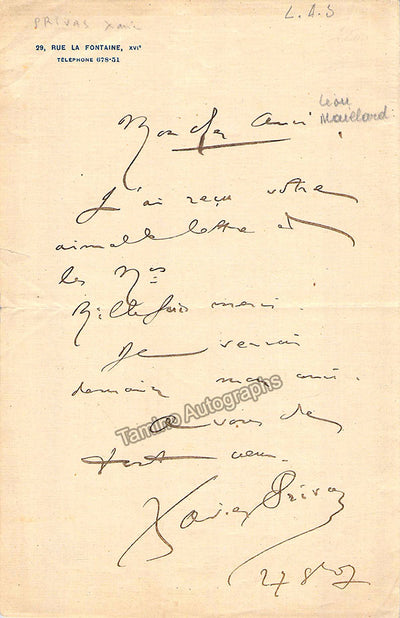 PRIVAS Xavier
L.A.S
29, RUE LA FONTAINE, XVIe
TÉLÉPHONE 678-51
Léon
Maillard
Mon cher Ami
J'ai reçu votre
aimable lettre et
les Nos
Mille fois merci.
Je verrai
demain mon ami.
A vous de
tout cœur.
Xavier Privas
27 8bre 07
Tamino Autographs